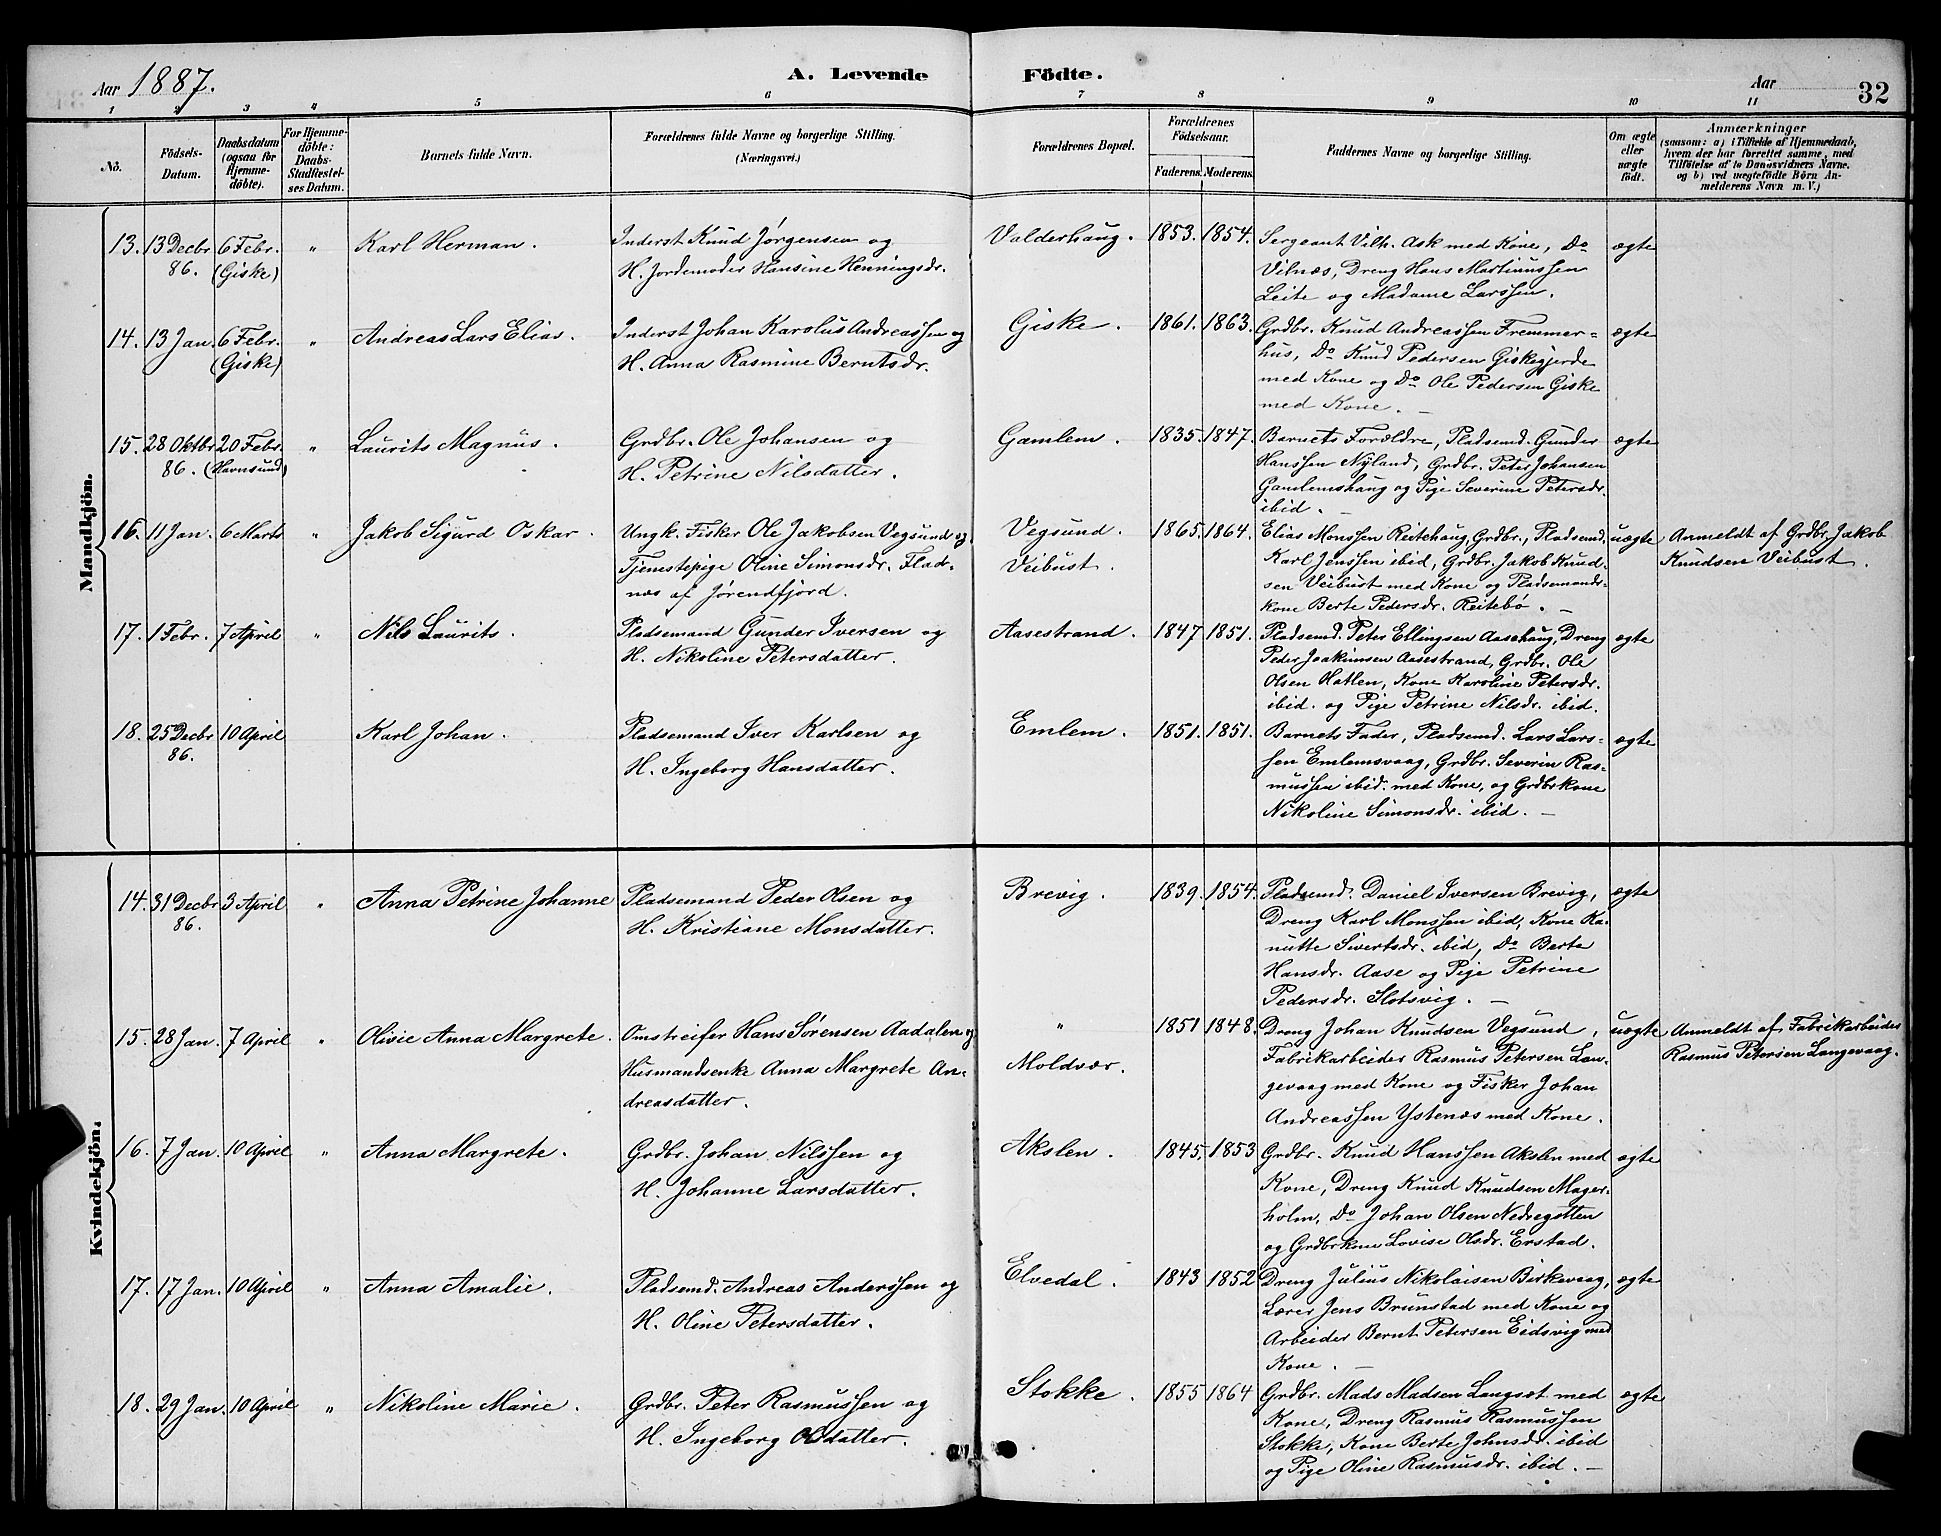 Aar 1887. A. Levende Födte. Aar 32
1 2 3 4 5 6 7 8 9 10 11
No. Födsels-Datum. Daabsdatum (ogsaa for Hjemme-döbte). For Hjemme-döbte: Daabs-Stadfestel-ses Datum. Barnets fulde Navn. Forældrenes fulde Navne og borgerlige Stilling. (Næringsvei.) Forældrenes Bopæl. Forældrenes Födselsaar. Faderens. Moderens. Faddernes Navne og borgerlige Stilling. Om ægte eller uægte födt. Anmærkninger (saasom: a) i Tilfælde af Hjemmedaab, hvem der har forrettet samme, med Tilföielse af to Daabsvidners Navne. og b) ved uægtefödte Börn An-melderens Navn m. V.)
Mandkjön.
13. 13 Decbr 6 Febr. " Karl Herman. Inderst Knud Jørgensen og Valderhaug. 1853. 1854. Sergeant Vilh. Ask med Kone, Do ægte
86. (Giske) H. Jordemoder Hansine Henningsdr. Vilnæs, Dreng Hans Martinussen
Leite og Madame Larssen.
14. 13 Jan. 6 Febr. " Andreas Lars Elias. Inderst Johan Karolus Andreassen og Giske. 1861. 1863. Grdbr. Knud Andreassen Fremmer= ægte
(Giske) H. Anna Rasmine Berntsdr. hus, Do Knud Pedersen Giskegjerde
med Kone og Do Ole Pedersen Giske
med Kone. —
15. 28 Oktbr 20 Febr. " Laurits Magnus. Grdbr. Ole Johansen og Gamlem. 1835. 1847. Barnets Forældre, Pladsemd. Gunder ægte
86. (Havnsund) H. Petrine Nilsdatter. Hanssen Nyland, Grdbr. Peter Johansen
Gamlemshaug og Pige Severine Petersdr.
ibid. —
16. 11 Jan. 6 Marts " Jakob Sigurd Oskar. Ungk. Fisker Ole Jakobsen Vegsund og Vegsund. 1865. 1864. Elias Monssen Reitehaug, Grdbr., Pladsemd. uægte Anmeldt af Grdbr. Jakob
Tjenestepige Oline Simonsdr. Flad- Veibust. Karl Jenssen ibid, Grdbr. Jakob Knud- Knudsen Veibust.
næs af Jørendfjord. sen Veibust med Kone og Pladsemands-
kone Berte Pedersdr. Reitebø. —
17. 1 Febr. 7 April " Nils Laurits. Pladsemand Gunder Iversen og Aasestrand. 1847 1851. Pladsemd. Peter Ellingsen Aasehaug, Dreng ægte
H. Nikoline Petersdatter. Peder Joakimsen Aasestrand, Grdbr. Ole
Olsen Hatlen, Kone Karoline Petersdr.
ibid. og Pige Petrine Nilsdr. ibid.
18. 25 Decbr 10 April Karl Johan. Pladsemand Iver Karlsen og Emlem. 1851. 1851. Barnets Fader, Pladsemd. Lars Lars= ægte
86. H. Ingeborg Hansdatter. sen Emlemsvaag, Grdbr. Severin Ras=
mussen ibid. med Kone, og Grdbrkone
Nikoline Simonsdr. ibid. —
Kvindekjön.
14. 31 Decbr 3 April " Anna Petrine Johanne Pladsemand Peder Olsen og Brevig. 1839. 1854. Pladsemd. Daniel Iversen Brevig, ægte
86. H. Kristiane Monsdatter. Dreng Karl Monssen ibid, Kone Ka-
nutte Sivertsdr. ibid, Do Berte
Hansdr. Aase og Pige Petrine
Pedersdr. Slotsvig. —
15. 28 Jan. 7 April " Olivie Anna Margrete. Omstreifer Hans Sørensen Aadalen og " 1851 1848. Dreng Johan Knudsen Vegsund, uægte Anmeldt af Fabrikarbeider
Husmandsenke Anna Margrete An- Moldvær. Fabrikarbeider Rasmus Petersen Lan- Rasmus Petersen Langevaag.
dreasdatter. gevaag med Kone og Fisker Johan
Andreassen Ystenæs med Kone.
16. 7 Jan. 10 April " Anna Margrete. Grdbr. Johan Nilssen og Akslen. 1845. 1853 Grdbr. Knud Hanssen Akslen med ægte
H. Johanne Larsdatter. Kone, Dreng Knud Knudsen Mager-
holm, Do Johan Olsen Nedregotten
og Grdbrkone Lovise Olsdr. Erstad.
17. 17 Jan. 10 April " Anna Amalie. Pladsemd. Andreas Anderssen og Elvedal. 1843 1852 Dreng Julius Nikolaisen Birkevaag, ægte
H. Oline Petersdatter. Lærer Jens Brunstad med Kone og
Arbeider Bernt Petersen Eidsvig med
Kone. —
18. 29 Jan. 10 April " Nikoline Marie. Grdbr. Peter Rasmussen og Stokke. 1855 1864 Grdbr. Mads Madsen Langset med ægte
H. Ingeborg Olsdatter. Kone, Dreng Rasmus Rasmussen
Stokke, Kone Berte Johnsdr. ibid
og Pige Oline Rasmusdr. ibid. —